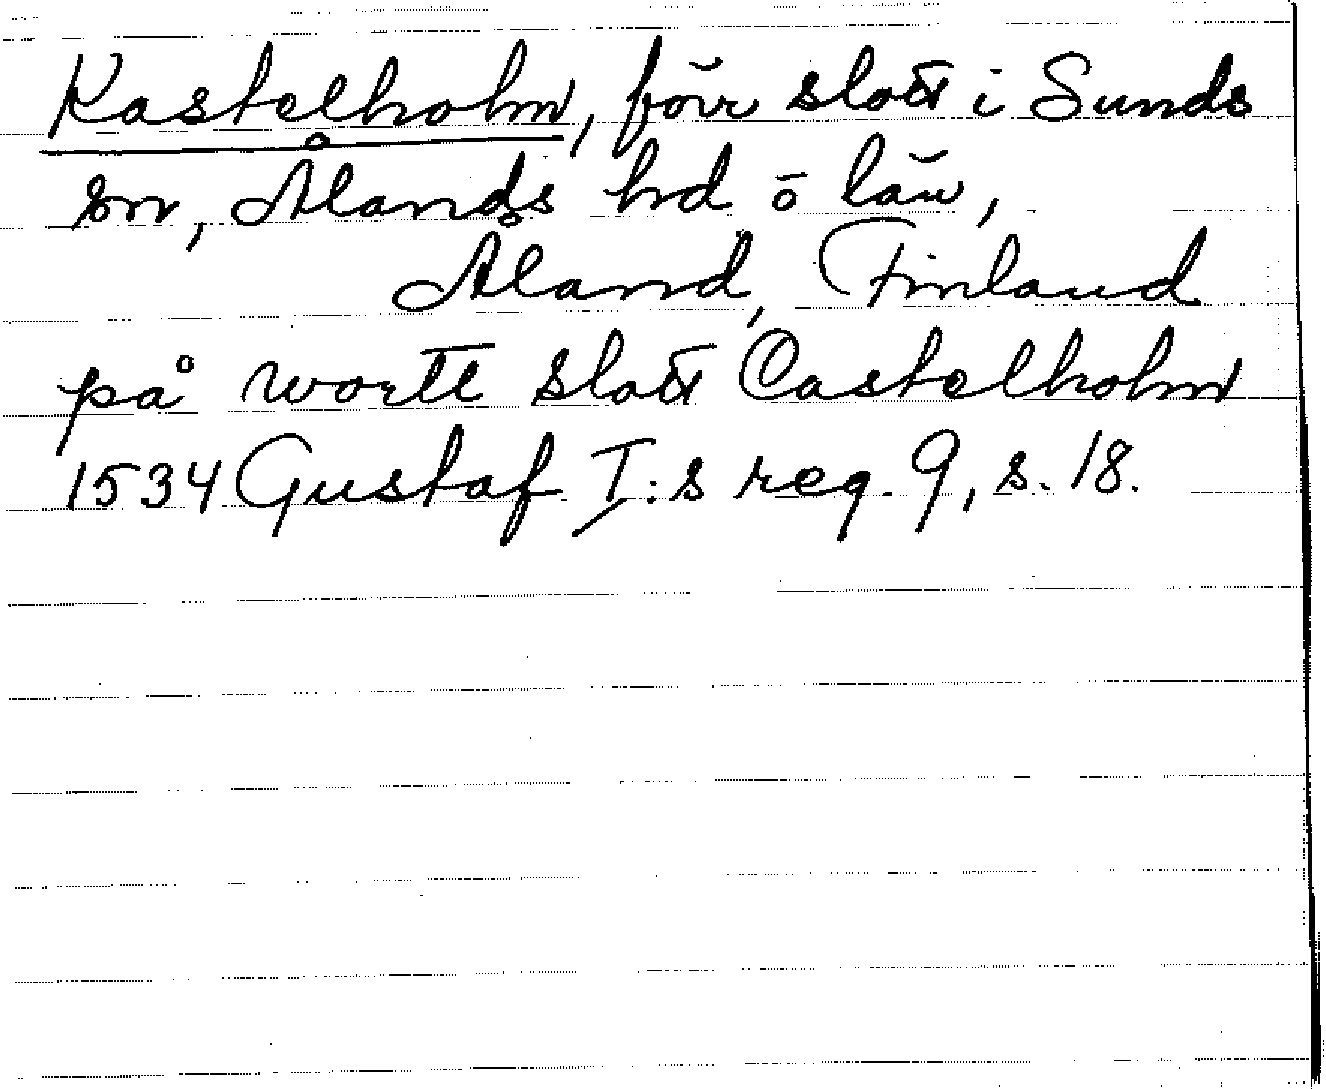 Kastelholm, förr slott i Sunds
sn, Ålands hd o län,
Åland, Finland
på wortt slott Castelholm
1534 Gustaf I:s reg. 9, s. 18.